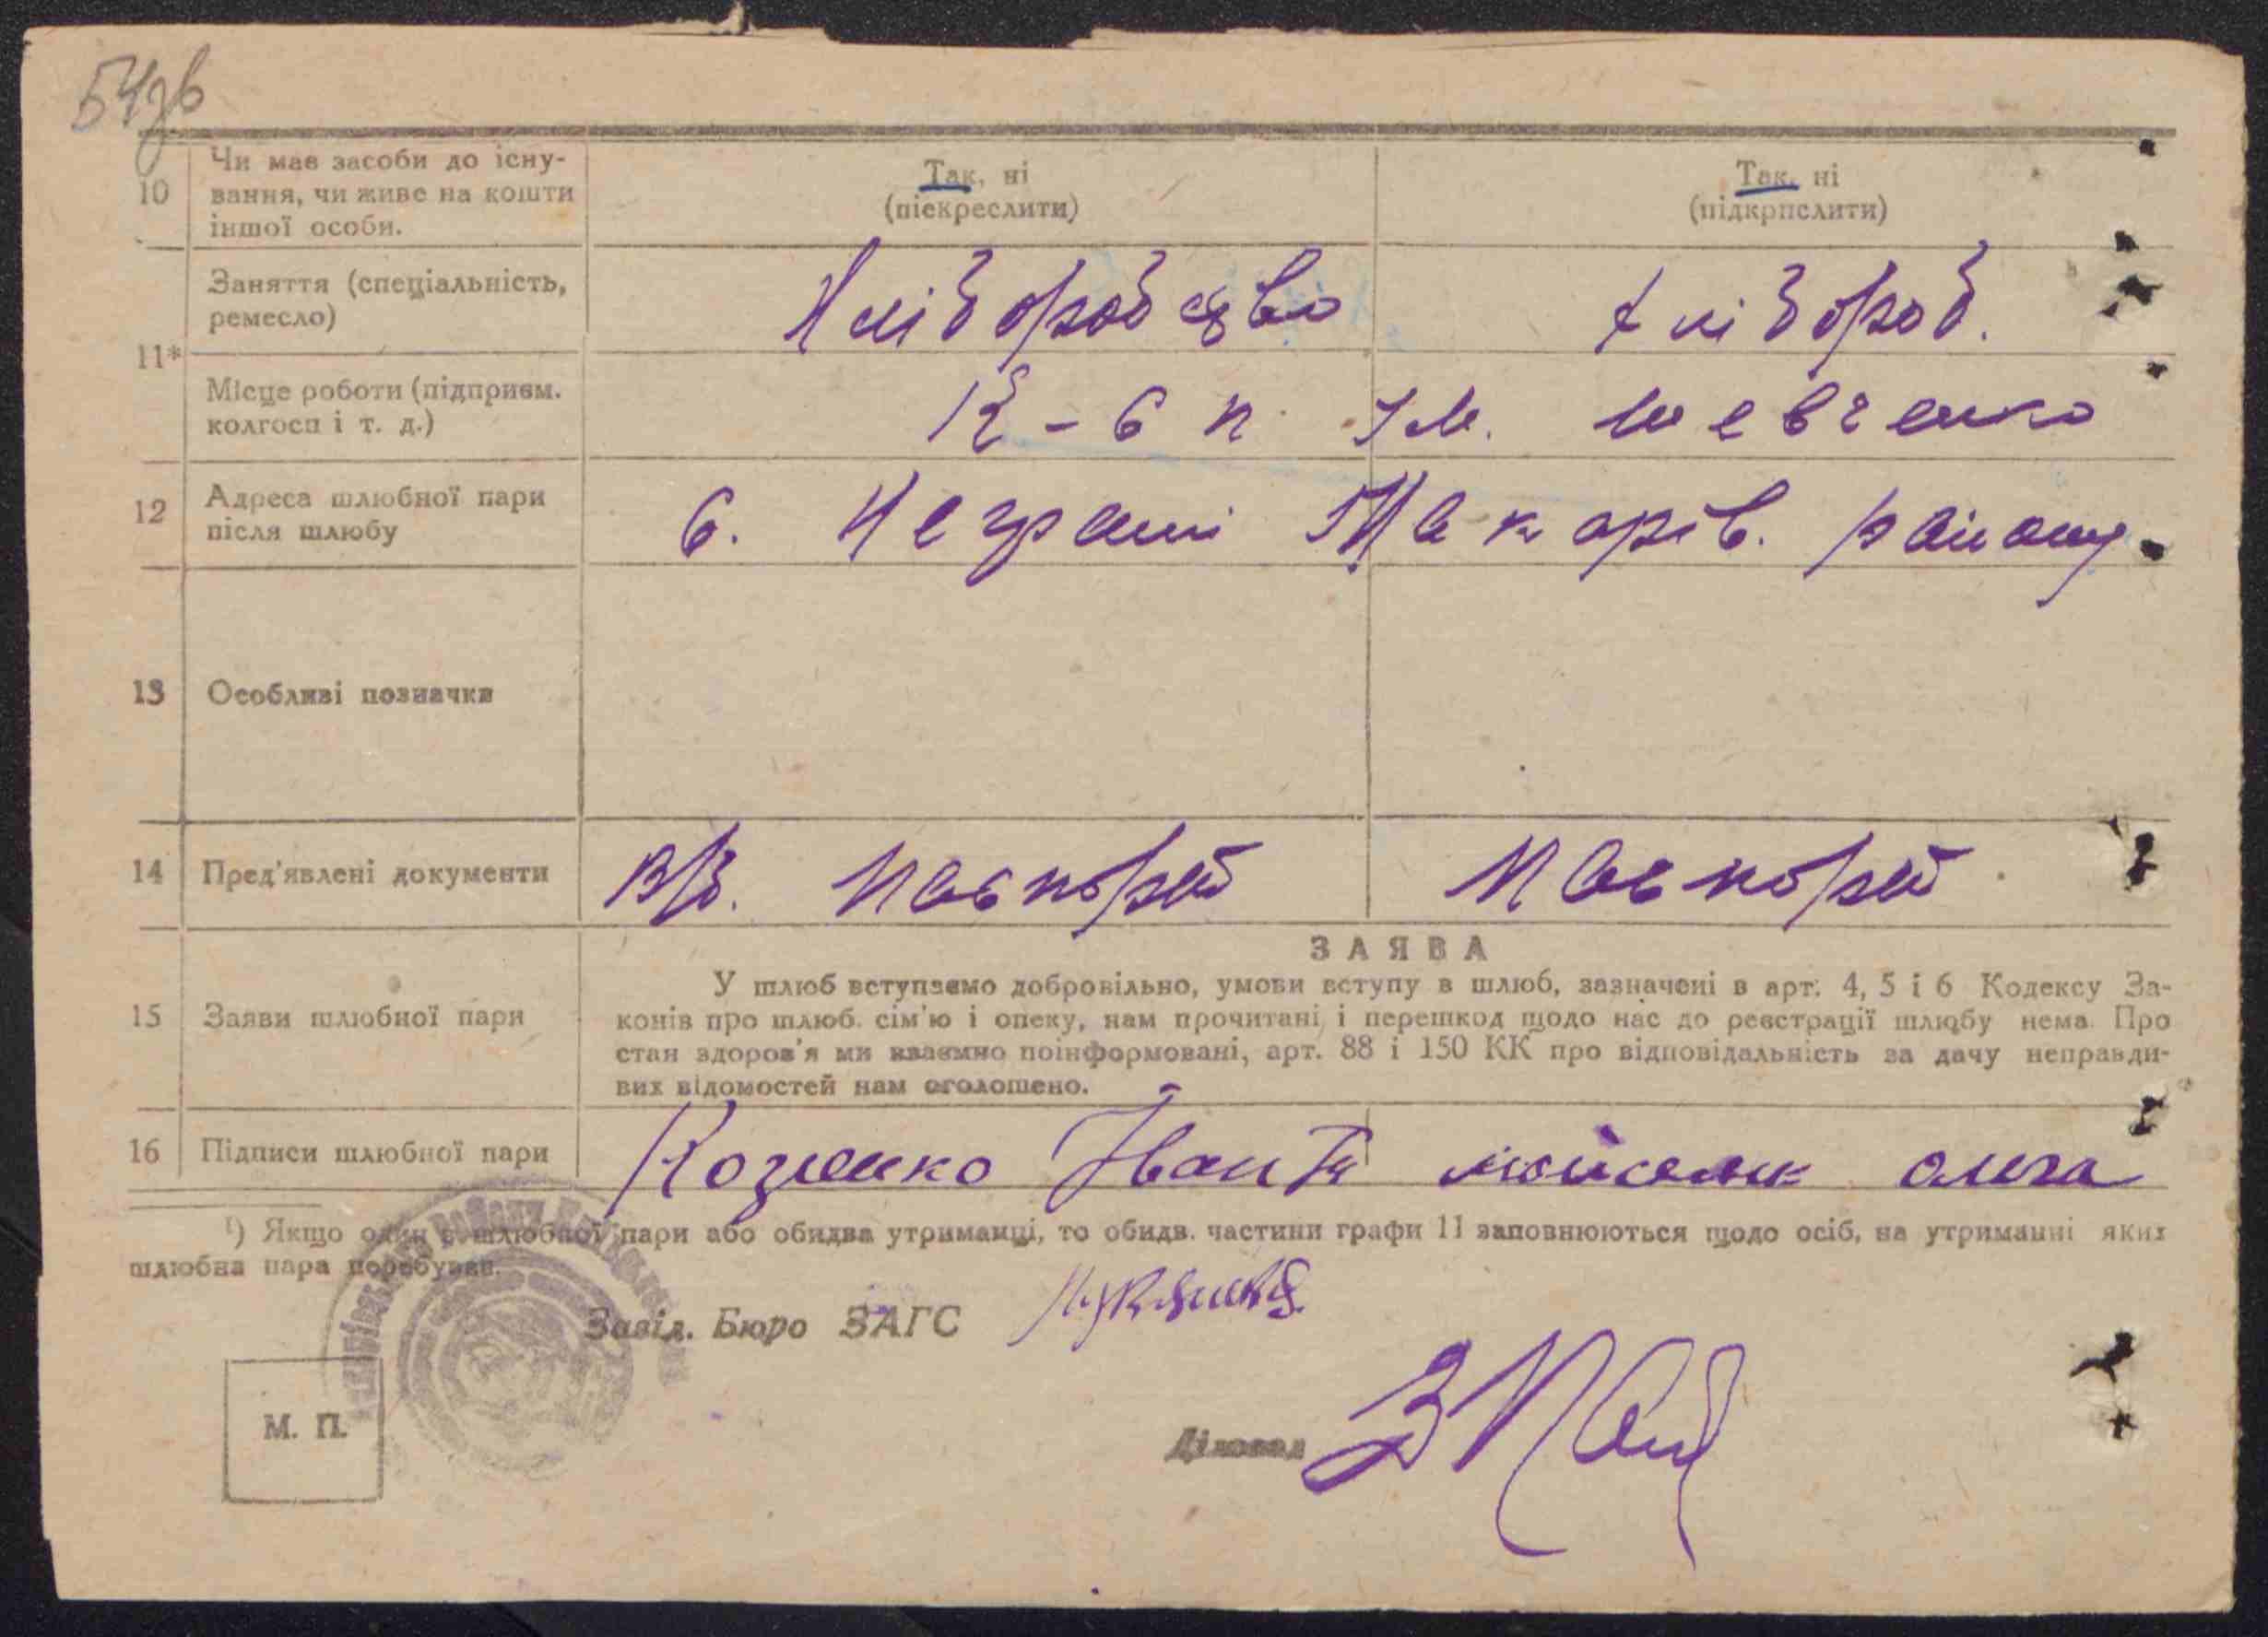 54зв
10 Чи має засоби до існування, чи живе на кошти іншої особи.
Так, ні
(піекреслити)
Так, ні
(підкрпслити)
11* Заняття (спеціальність, ремесло)
Хліборобство
Хлібороб.
Місце роботи (підприєм. колгосп і т. д.)
К-сп ім. Шевченко
12 Адреса шлюбної пари після шлюбу
с. Неграші Макарів. району
13 Особливі позначки
14 Пред'явлені документи
в/б. паспорт
паспорт
15 Заяви шлюбної пари
ЗАЯВА
У шлюб вступаємо добровільно, умови вступу в шлюб, зазначені в арт. 4, 5 і 6 Кодексу За-
конів про шлюб. сім'ю і опеку, нам прочитані і перешкод щодо нас до реєстрації шлюбу нема. Про
стан здоров'я ми взаємно поінформовані, арт. 88 і 150 КК про відповідальність за дачу неправди-
вих відомостей нам оголошено.
16 Підписи шлюбної пари
Іван
Ольга
¹) Якщо один з шлюбної пари або обидва утриманці, то обидв. частини графи 11 заповнюються щодо осіб, на утриманні яких
шлюбна пара перебував.
Завід. Бюро ЗАГС
М. П.
Діловод